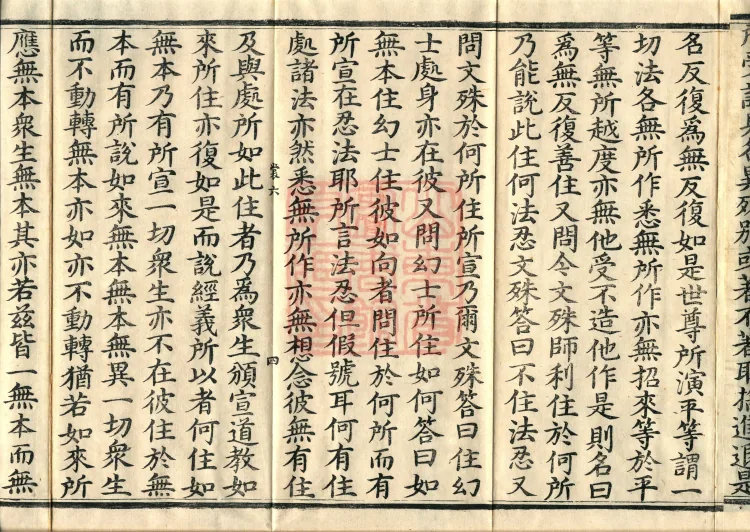 名反復為無反復如是世尊所演平等謂一
切法各無所作悉無所作亦無招來等於平
等無所越度亦無他受不造他作是則名曰
為無反復善住又問今文殊師利住於何所
乃能說此住何法忍文殊答曰不住法忍又
問文殊於何所住所宣乃爾文殊答曰住幻
士處身亦在彼又問幻士所住如何答曰如
無本住幻士住彼如向者問住於何所而有
所宣在忍法耶所言法忍但假號耳何有住
處諸法亦然悉無所作亦無想念彼無有住
棠六
四
及與處所如此住者乃為眾生頒宣道教如
來所住亦復如是而說經義所以者何住如
無本乃有所宣一切眾生亦不在彼住於無
本而有所說如來無本無本無異一切眾生
而不動轉無本亦如亦不動轉猶若如來所
應無本眾生無本其亦若茲皆一無本而無